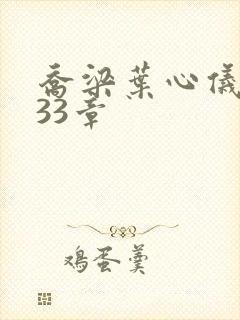 乔梁叶心仪
33章
鸡蛋羹